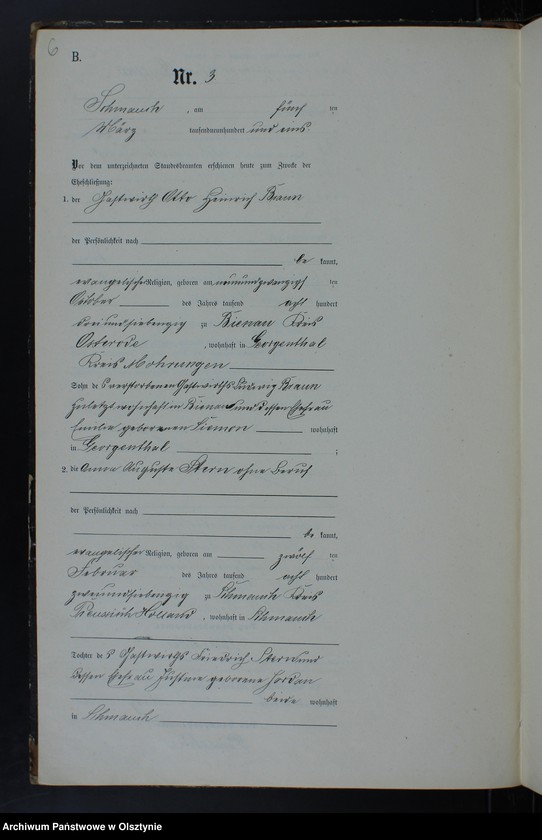 6
B.
Nr. 3
Schmauch, am fünf ten
März tausendneunhundert und eins.
Vor dem unterzeichneten Standesbeamten erschienen heute zum Zwecke der
Eheschließung:
1. der Gastwirth Otto Heinrich Braun
der Persönlichkeit nach
be kannt,
evangelischer Religion, geboren am neunundzwanzigst ten
Oktober des Jahres tausend acht hundert
dreiundsiebenzig zu Bienau Kreis
Osterode, wohnhaft in Georgenthal
Kreis Mohrungen
Sohn des verstorbenen Gastwirths Ludwig Braun
zuletzt wohnhaft in Bienau und dessen Ehefrau
Emilie geborenen Siemon wohnhaft
in Georgenthal ;
2. die Anna Auguste Stern ohne Beruf
der Persönlichkeit nach
be kannt,
evangelischer Religion, geboren am zwölf ten
Februar des Jahres tausend acht hundert
zweiundsiebenzig zu Schmauch Kreis
Preussisch Holland, wohnhaft in Schmauch
Tochter des Gastwirths Friedrich Stern und
dessen Ehefrau Justine geborene Jordan
beide wohnhaft
in Schmauch
Archiwum Państwowe w Olsztynie